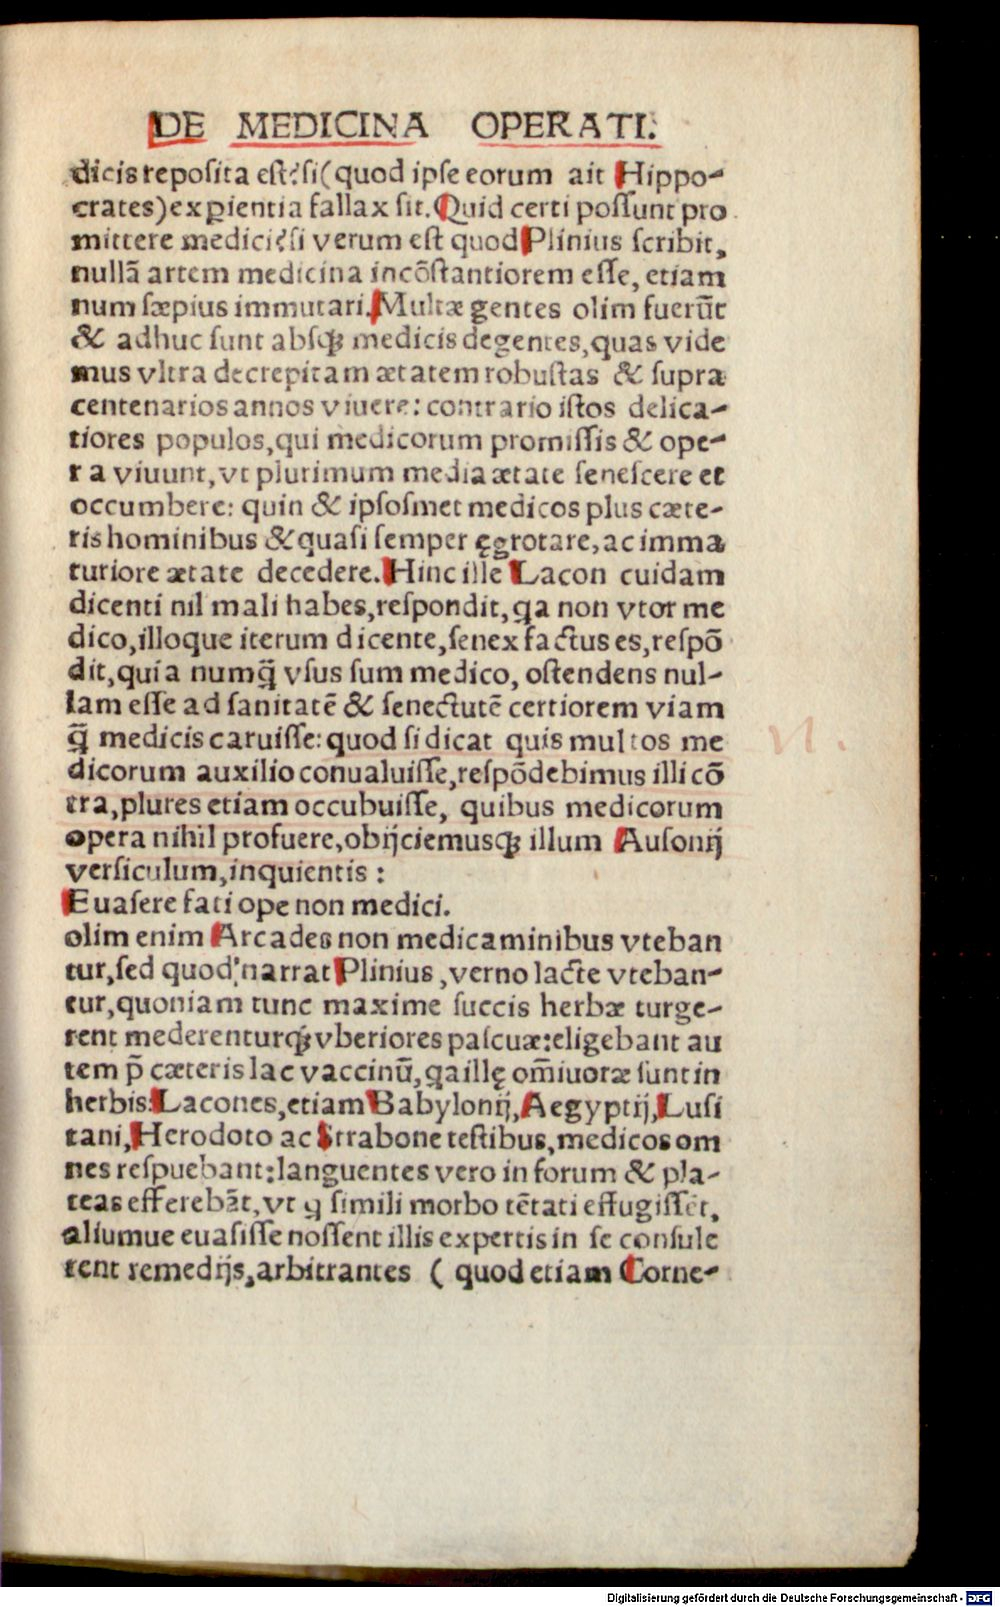 DE MEDICINA OPERATI.
dicis reposita est? si (quod ipse eorum ait Hippo-
crates) exꝑientia fallax sit. Quid certi possunt pro
mittere medici? si verum est quod Plinius scribit,
nullā artem medicina incōstantiorem esse, etiam
num sæpius immutari. Multæ gentes olim fuerūt
& adhuc sunt absqꝫ medicis degentes, quas vide
mus vltra decrepitam ætatem robustas & supra
centenarios annos viuere: contrario istos delica-
tiores populos, qui medicorum promissis & ope-
ra viuunt, vt plurimum media ætate senescere et
occumbere: quin & ipsosmet medicos plus cæte-
ris hominibus & quasi semper ęgrotare, ac imma
turiore ætate decedere. Hinc ille Lacon cuidam
dicenti nil mali habes, respondit, qa non vtor me
dico, illoque iterum dicente, senex factus es, respō
dit, quia numq̄ vsus sum medico, ostendens nul-
lam esse ad sanitatē & senectutē certiorem viam
q̄ medicis caruisse: quod si dicat quis multos me
dicorum auxilio conualuisse, respōdebimus illi cō
tra, plures etiam occubuisse, quibus medicorum
opera nihil profuere, obijciemusqꝫ illum Ausonij
versiculum, inquientis :
Euasere fati ope non medici.
olim enim Arcades non medicaminibus vteban
tur, sed quod narrat Plinius, verno lacte vteban-
tur, quoniam tunc maxime succis herbæ turge-
rent mederenturqꝫ vberiores pascuæ: eligebant au
tem p̄ cæteris lac vaccinū, qa illę om̄iuoræ sunt in
herbis: Lacones, etiam Babylonij, Aegyptij, Lusi
tani, Herodoto ac Strabone testibus, medicos om
nes respuebant: languentes vero in forum & pla-
teas efferebāt, vt q simili morbo tētati effugissēt,
aliumue euasisse nossent illis expertis in se consule
rent remedijs, arbitrantes ( quod etiam Corne-
Digitalisierung gefördert durch die Deutsche Forschungsgemeinschaft - DFG